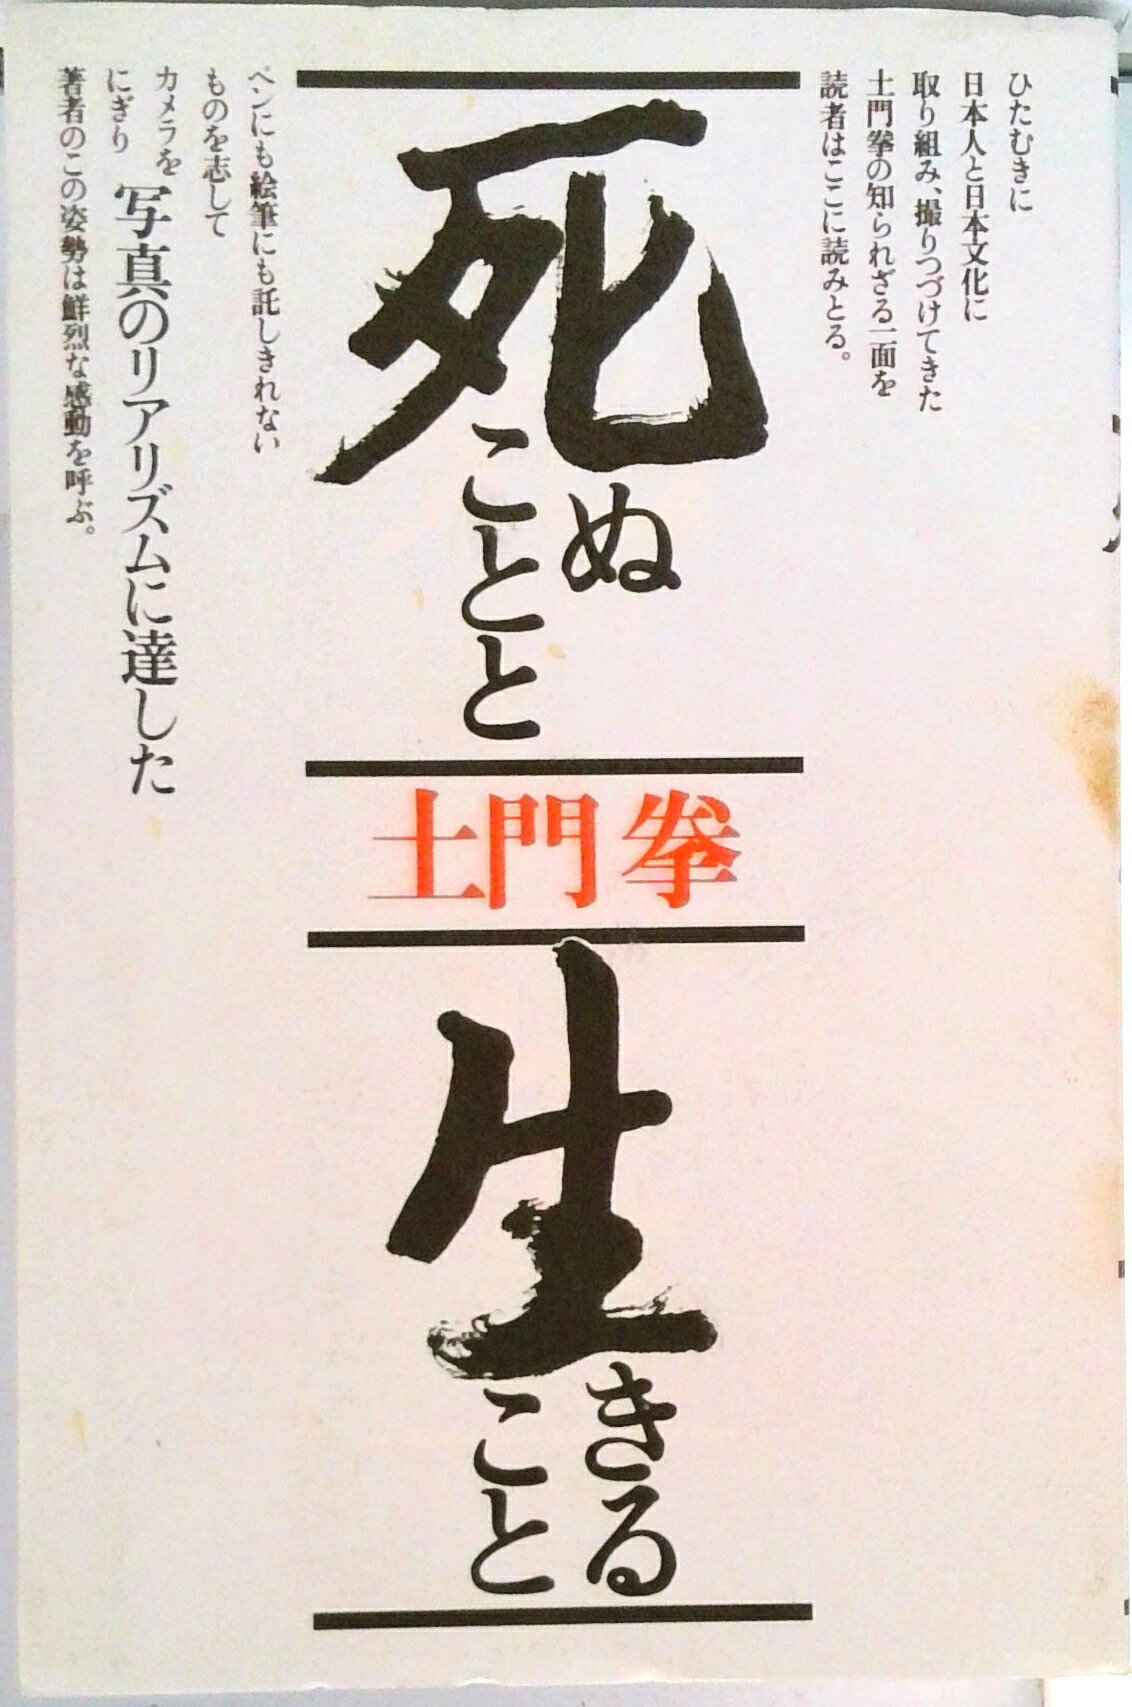 ひたむきに
日本人と日本文化に
取り組み、撮りつづけてきた
土門拳の知られざる一面を
読者はここに読みとる。
死ぬ
ことと
土門拳
生きる
こと
ペンにも絵筆にも託しきれない
ものを志して
カメラを
にぎり
写真のリアリズムに達した
著者のこの姿勢は鮮烈な感動を呼ぶ。